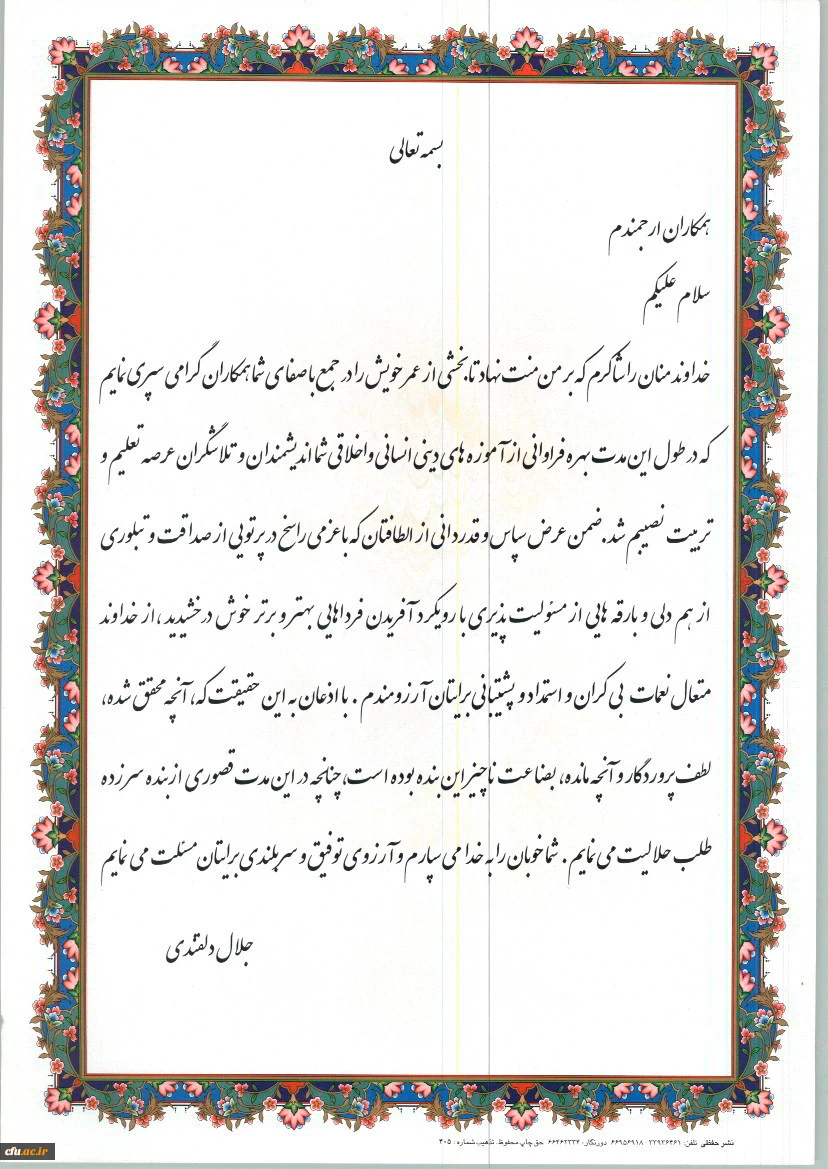 بسمه تعالی
همکاران ارجمندم
سلام علیکم
خداوند منان را شاکرم که بر من منت نهاد تا بخشی از عمر خویش را در جمع باصفای شما همکاران گرامی سپری نمایم
که در طول این مدت بهره فراوانی از آموزه های دینی انسانی و اخلاقی شما اندیشمندان و تلاشگران عرصه تعلیم و
تربیت نصیبم شد. ضمن عرض سپاس و قدردانی از الطافتان که با عزمی راسخ در پرتویی از صداقت و تبلوری
از هم دلی و بارقه هایی از مسئولیت پذیری با رویکرد آفریدن فرداهایی بهتر و برتر خوش درخشیدید ، از خداوند
متعال نعمات بی کران و استمداد و پشتیبانی برایتان آرزومندم . با اذعان به این حقیقت که، آنچه محقق شده،
لطف پروردگار و آنچه مانده، بضاعت ناچیز این بنده بوده است، چنانچه در این مدت قصوری از بنده سرزده
طلب حلالیت می نمایم . شما خوبان را به خدا می سپارم و آرزوی توفیق و سربلندی برایتان مسئلت می نمایم
جلال دلقندی
نشر حفظی تلفن: ۳۳۹۳۶۴۶۱ - ۶۶۹۵۶۹۱۸ دورنگار: ۶۶۴۶۲۳۳۴ حق چاپ محفوظ. تذهیب شماره : ۴۰۵
cfu.ac.ir